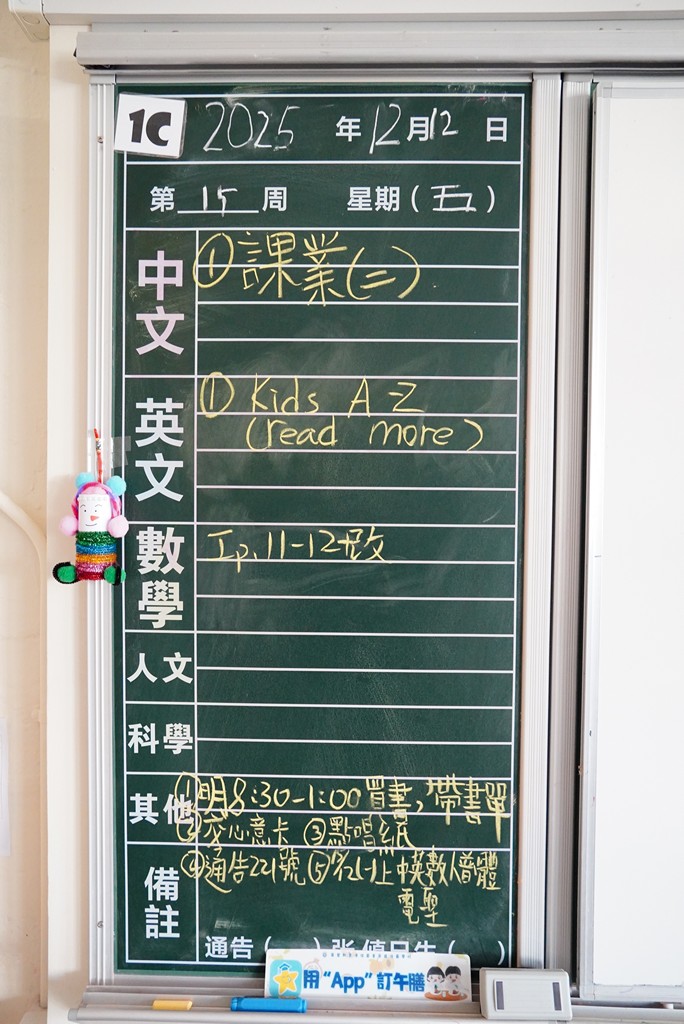 1C 2025 年 12 月 12 日
第 15 周 星期(五)
中文
①課業(二)
英文
① Kids A-Z
(read more)
數學
工p.11-12改
人文
科學
其他
①明8:30-1:00買書,帶書單
②交心意卡 ③點唱紙
備註
④通告221號 ⑤名1-1上中英數人普體
電聖
通告( )張
用“App”訂午膳